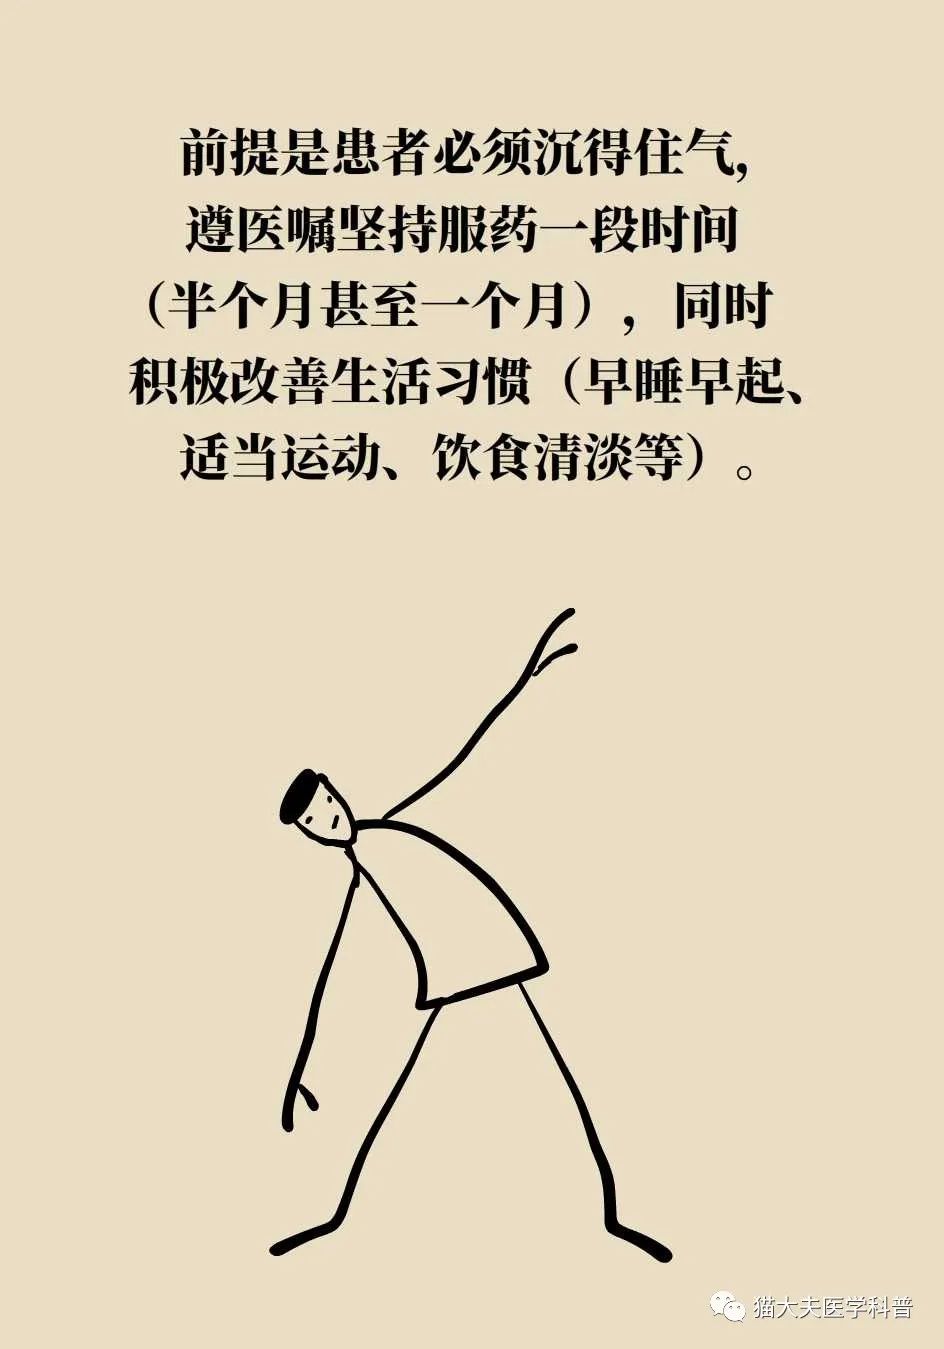 前提是患者必须沉得住气，
遵医嘱坚持服药一段时间
（半个月甚至一个月），同时
积极改善生活习惯（早睡早起、
适当运动、饮食清淡等）。
猫大夫医学科普